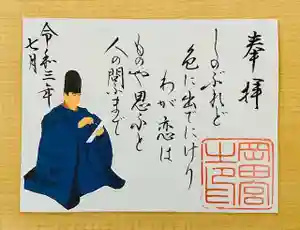 奉拝
しのぶれど
色に出でにけり
わが恋は
ものや思ふと
人の問ふまで
令和三年
七月
岡田宮